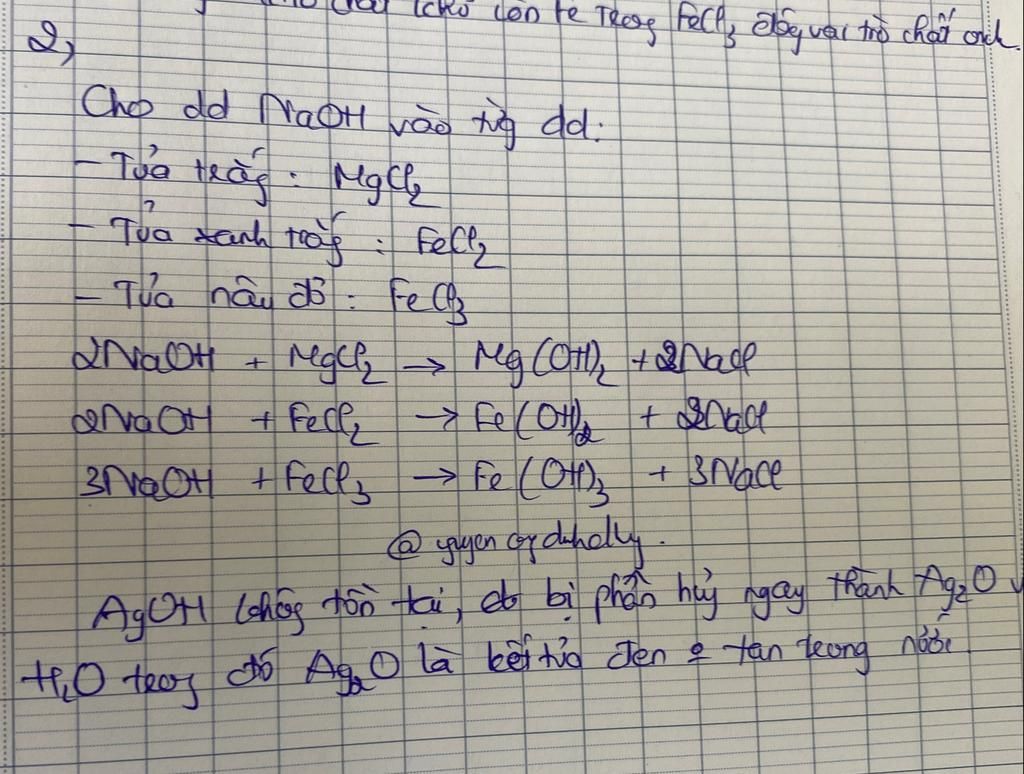 trong FeCl3 đóng vai trò chất
2,
Cho dd NaOH vào từng dd:
- Tủa trắng: MgCl2
- Tủa xanh trắng: FeCl2
- Tủa nâu đỏ: FeCl3
2NaOH + MgCl2 → Mg(OH)2 + 2NaCl
2NaOH + FeCl2 → Fe(OH)2 + 2NaCl
3NaOH + FeCl3 → Fe(OH)3 + 3NaCl
@
AgOH không tồn tại, do bị phân hủy ngay thành Ag2O v
H2O trong đó Ag2O là kết tủa đen tan trong nước